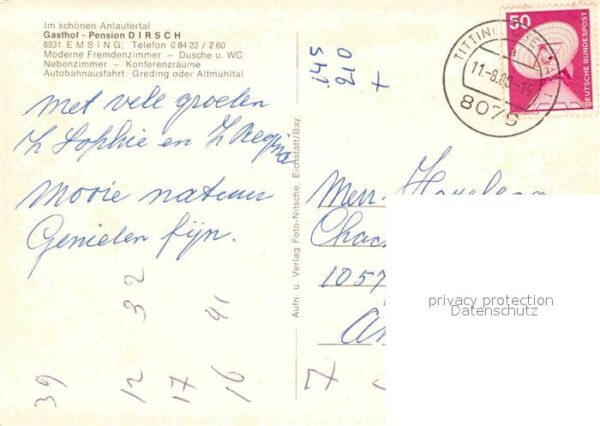 Im schönen Anlautertal
Gasthof - Pension DIRSCH
8831 EMSING, Telefon 0 84 23 / 2 60
Moderne Fremdenzimmer – Dusche u. WC
Nebenzimmer – Konferenzräume
Autobahnausfahrt. Greding oder Altmühltal
Met vele groeten
Z Sophie en Z Regina
Mooie natuur
Genieten fijn.
39
12 32
17
16 41
Aufn. u. Verlag Foto-Nitsche, Eichstätt/Bay.
+
50
DEUTSCHE BUNDESPOST
TITTING
11.-8.80.-15
8079
Mevr.
1057
7
privacy protection
Datenschutz